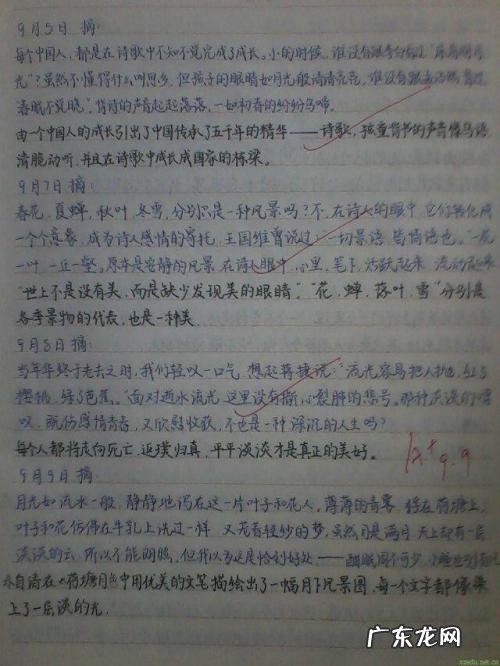 9月5日 摘:
每个中国人,都是在诗歌中不知不觉完成了成长。小的时候,谁没有跟李白念过"床前明月
光"?虽然不懂得什么叫思乡,但孩子的眼睛如月光般清清亮亮。谁没有跟孟浩然
春眠不觉晓",背诗的声音起起落落,一如初春的纷纷鸟啼。
由一个中国人的成长引出了中国传承了五千年的精华——诗歌,孩童背书的声音像鸟语
清脆动听,并且在诗歌中成长成国家的栋梁。
9月7日 摘:
春花,夏蝉,秋叶,冬雪,分别只是一种风景吗?不,在诗人的眼中,它们
一个个意象,成为诗人感情的寄托,王国维曾说过:"一切景语,皆情语也。"一花
一叶,一丘一壑,原本是安静的风景,在诗人眼中,心里,笔下,活跃起来,流动起来
"世上不是没有美,而是缺少发现美的眼睛","花,蝉,落叶,雪"分别是
各季景物的代表,也是一种美。
9月8日 摘:
当年华终于老去之时,我们轻叹一口气,想起蒋捷说:"流光容易把人抛,红了
樱桃,绿了芭蕉。"面对逝水流光,这里没有撕心裂肺的悲号。那种淡淡的
叹,既伤感惜青春,又欣慰收获,不也是一种深沉的人生吗?
每个人都将走向死亡,返璞归真,平平淡淡才是真正的美好。
A+ 9.9
9月9日 摘:
月光如流水一般,静静地泻在这一片叶子和花上。薄薄的青雾浮在荷塘上。
叶子和花仿佛在牛乳上洗过一样,又笼着轻纱的梦,虽然月是满月,天上却有一层
淡淡的云,所以不能朗照,但我以为这是恰到好处——酣眠固不可少,小睡也别有
朱自清在《荷塘月色》中用优美的文笔描绘出了一幅月下风景图,每一个文字都像染
上了一层淡的光。
广东龙网